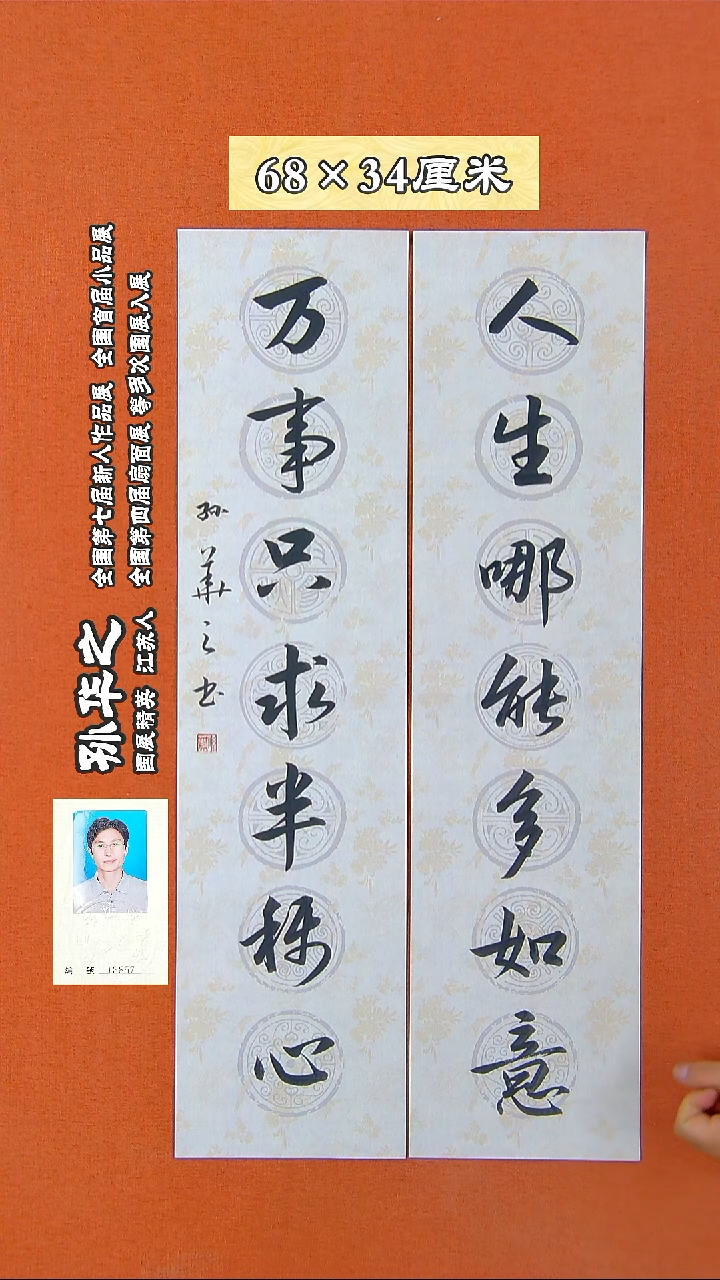 68×34厘米
人生哪能多如意
万事只求半称心
孙华之书
孙华之
国展精英 江苏人
全国第七届新人作品展 全国首届小品展
全国第四届扇面展 等多次国展入展
编 号